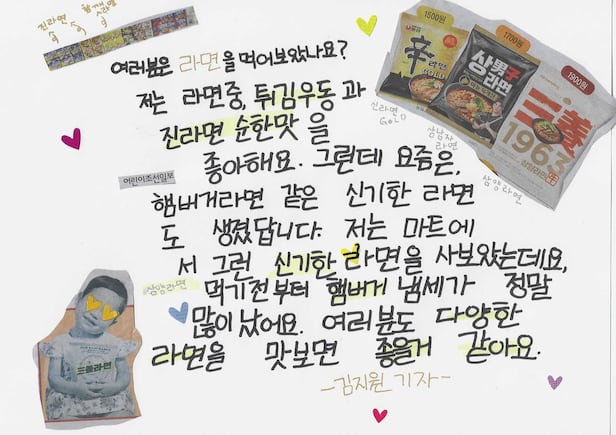 진라면 참깨라면
여러분은 라면을 먹어보았나요?
저는 라면중, 튀김우동과
진라면 순한맛을
좋아해요. 그런데 요즘은,
어린이조선일보
햄버거라면 같은 신기한 라면
도 생겼답니다. 저는 마트에
서 그런 신기한 라면을 사보았는데요,
삼양라면
먹기전부터 햄버거 냄세가 정말
많이 났어요. 여러분도 다양한
라면을 맛보면 좋을거 같아요.
-김지원 기자-
1500원
辛
라면
GOLD
신라면
Gold
1700원
상男子
라면
상남자
라면
1900원
三養
1963
삼양라면
三養라면